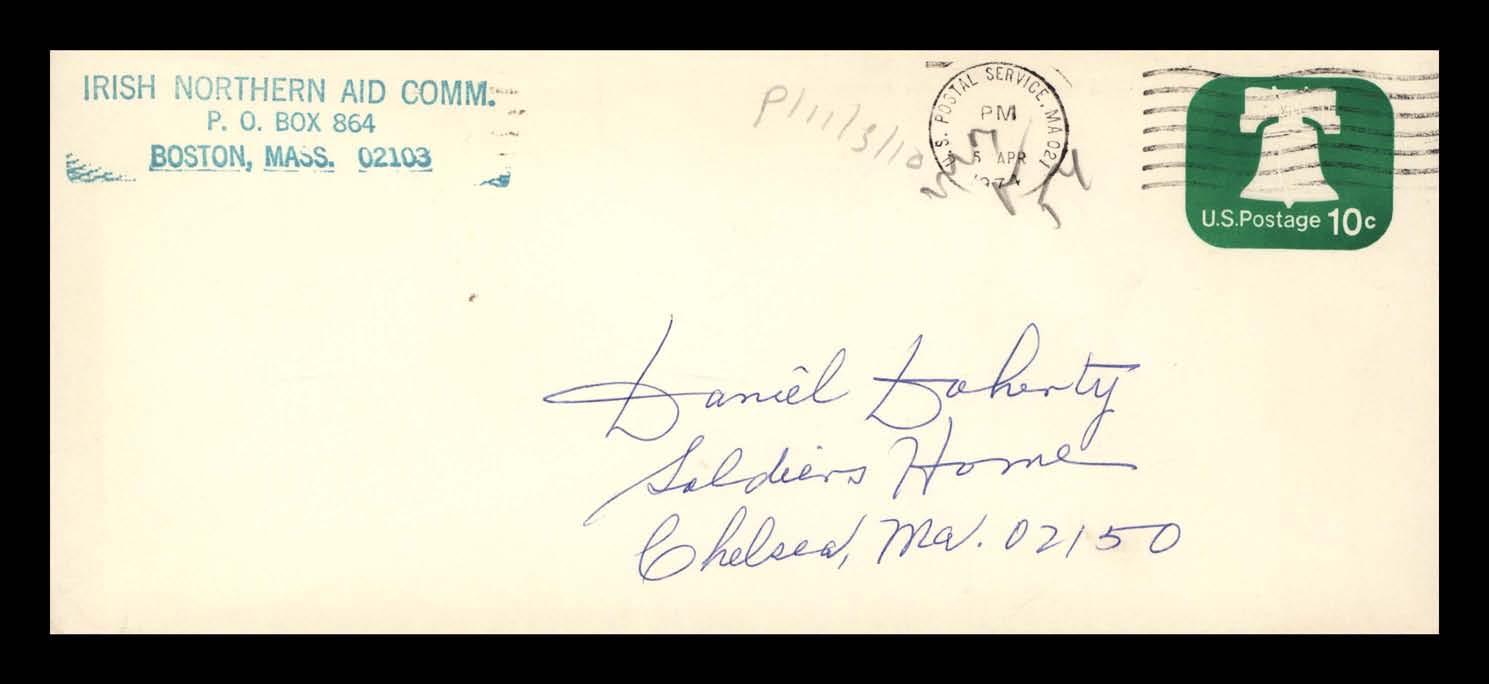 IRISH NORTHERN AID COMM.
P. O. BOX 864
BOSTON, MASS. 02103
P/11/3/10
U.S. POSTAL SERVICE, MA 021
PM
5 APR
U.S.Postage 10c
Daniel Doherty
Soldiers Home
Chelsea, Ma. 02150